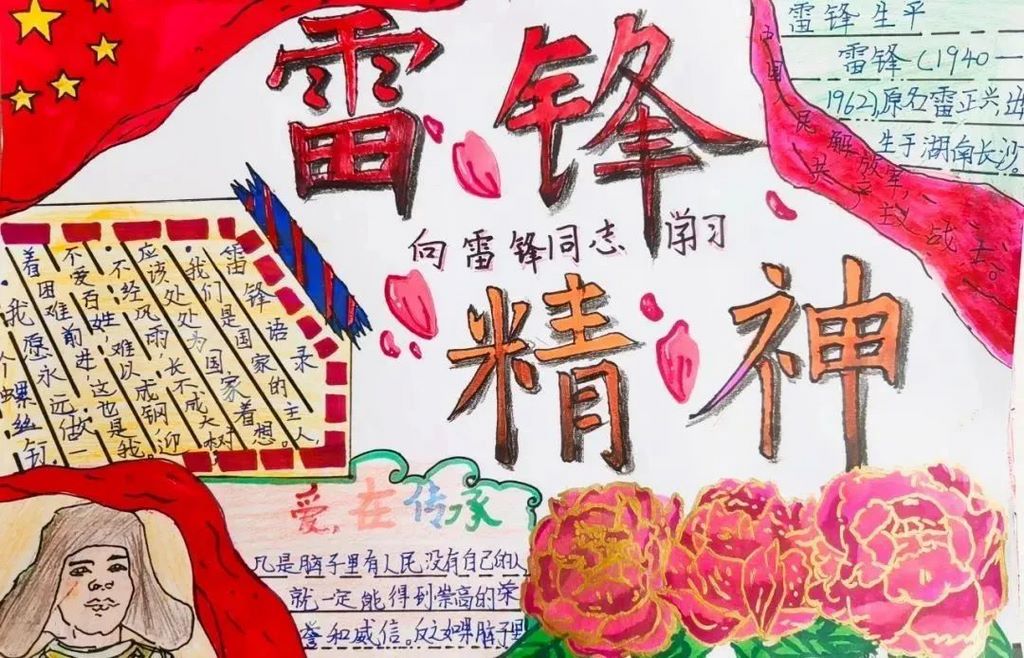 雷锋
向雷锋同志学习
精神
雷锋生平
雷锋(1940一
1962),原名雷正兴,出
生于湖南长沙。
中国人民解放军,
共产主义战士。
雷锋语录
·我们是国家的主人,
应该处处为国家着想。
·不经风雨,长不成大树
不受百姓,难以成钢迎
着困难前进,这也是我。
·我愿永远做一
个螺丝钉
爱,在传承
凡是脑子里有人民没有自己的人
就一定能得到崇高的荣
誉和威信。反之如果脑子里